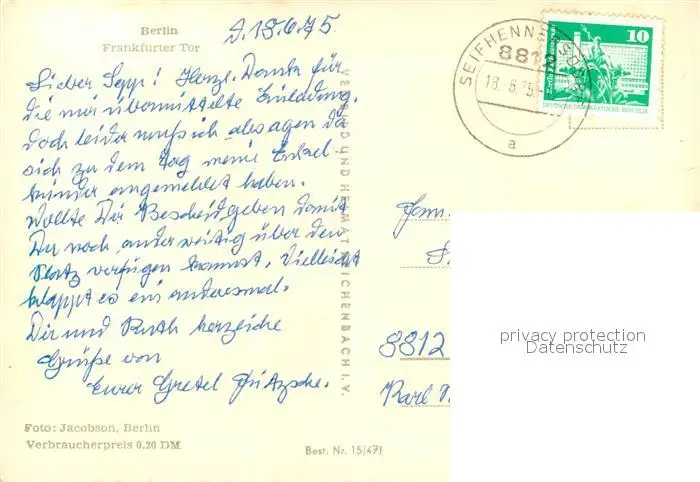 Berlin
Frankfurter Tor
d. 18.6.75.
Lieber Sepp! Herzl. Dank für
die mir übermittelte Einladung.
doch leider muß ich absagen da
sich zu dem Tag meine Enkel-
kinder angemeldet haben.
Wollte Dir Bescheid geben damit
Du noch anderweitig über den
Platz verfügen kannst. Vielleicht
klappt es ein andermal.
Dir und Ruth herzliche
Grüße von
Eurer Gretel Fritzsche.
Foto: Jacobson, Berlin
Verbraucherpreis 0,20 DM
Best. Nr. 15/471
VERLAG BILD UND HEIMAT REICHENBACH I. V.
SEIFHENNERSDORF
8812
18.-6.75
a
10
DEUTSCHE DEMOKRATISCHE REPUBLIK
8812
Karl
privacy protection
Datenschutz